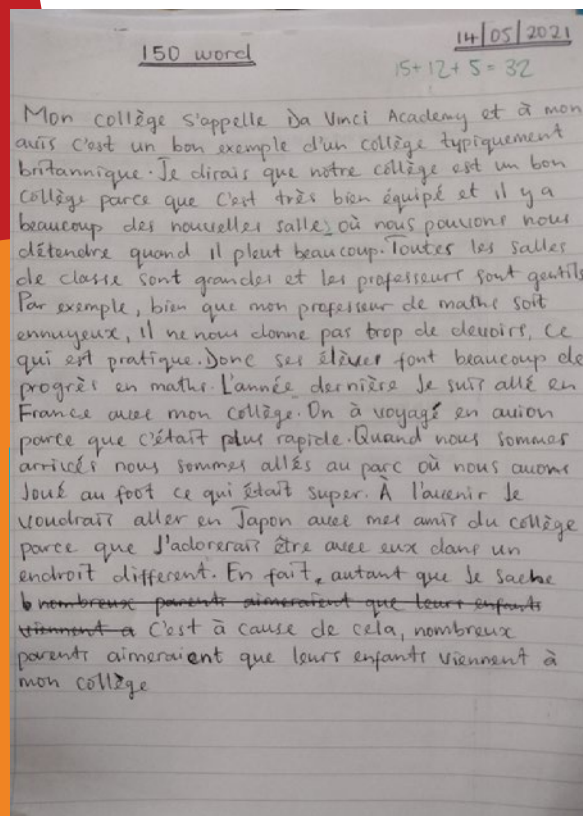 14/05/2021
150 word
15+12+5=32
Mon collège s'appelle Da Vinci Academy et à mon
avis c'est un bon exemple d'un collège typiquement
britannique. Je dirais que notre collège est un bon
collège parce que c'est très bien équipé et il y a
beaucoup des nouvelles salles où nous pouvons nous
détendre quand il pleut beaucoup. Toutes les salles
de classe sont grandes et les professeurs sont gentils
Par exemple, bien que mon professeur de maths soit
ennuyeux, il ne nous donne pas trop de devoirs, ce
qui est pratique. Donc ses élèves font beaucoup de
progrès en maths. L'année dernière Je suis allé en
France avec mon collège. On à voyagé en avion
parce que c'était plus rapide. Quand nous sommes
arrivés nous sommes allés au parc où nous avons
Joué au foot ce qui était super. À l'avenir Je
voudrais aller en Japon avec mes amis du collège
parce que J'adorerais être avec eux dans un
endroit different. En fait, autant que Je sache
b nombreux parents aimeraient que leurs enfants
viennent a C'est à cause de cela, nombreux
parents aimeraient que leurs enfants viennent à
mon collège